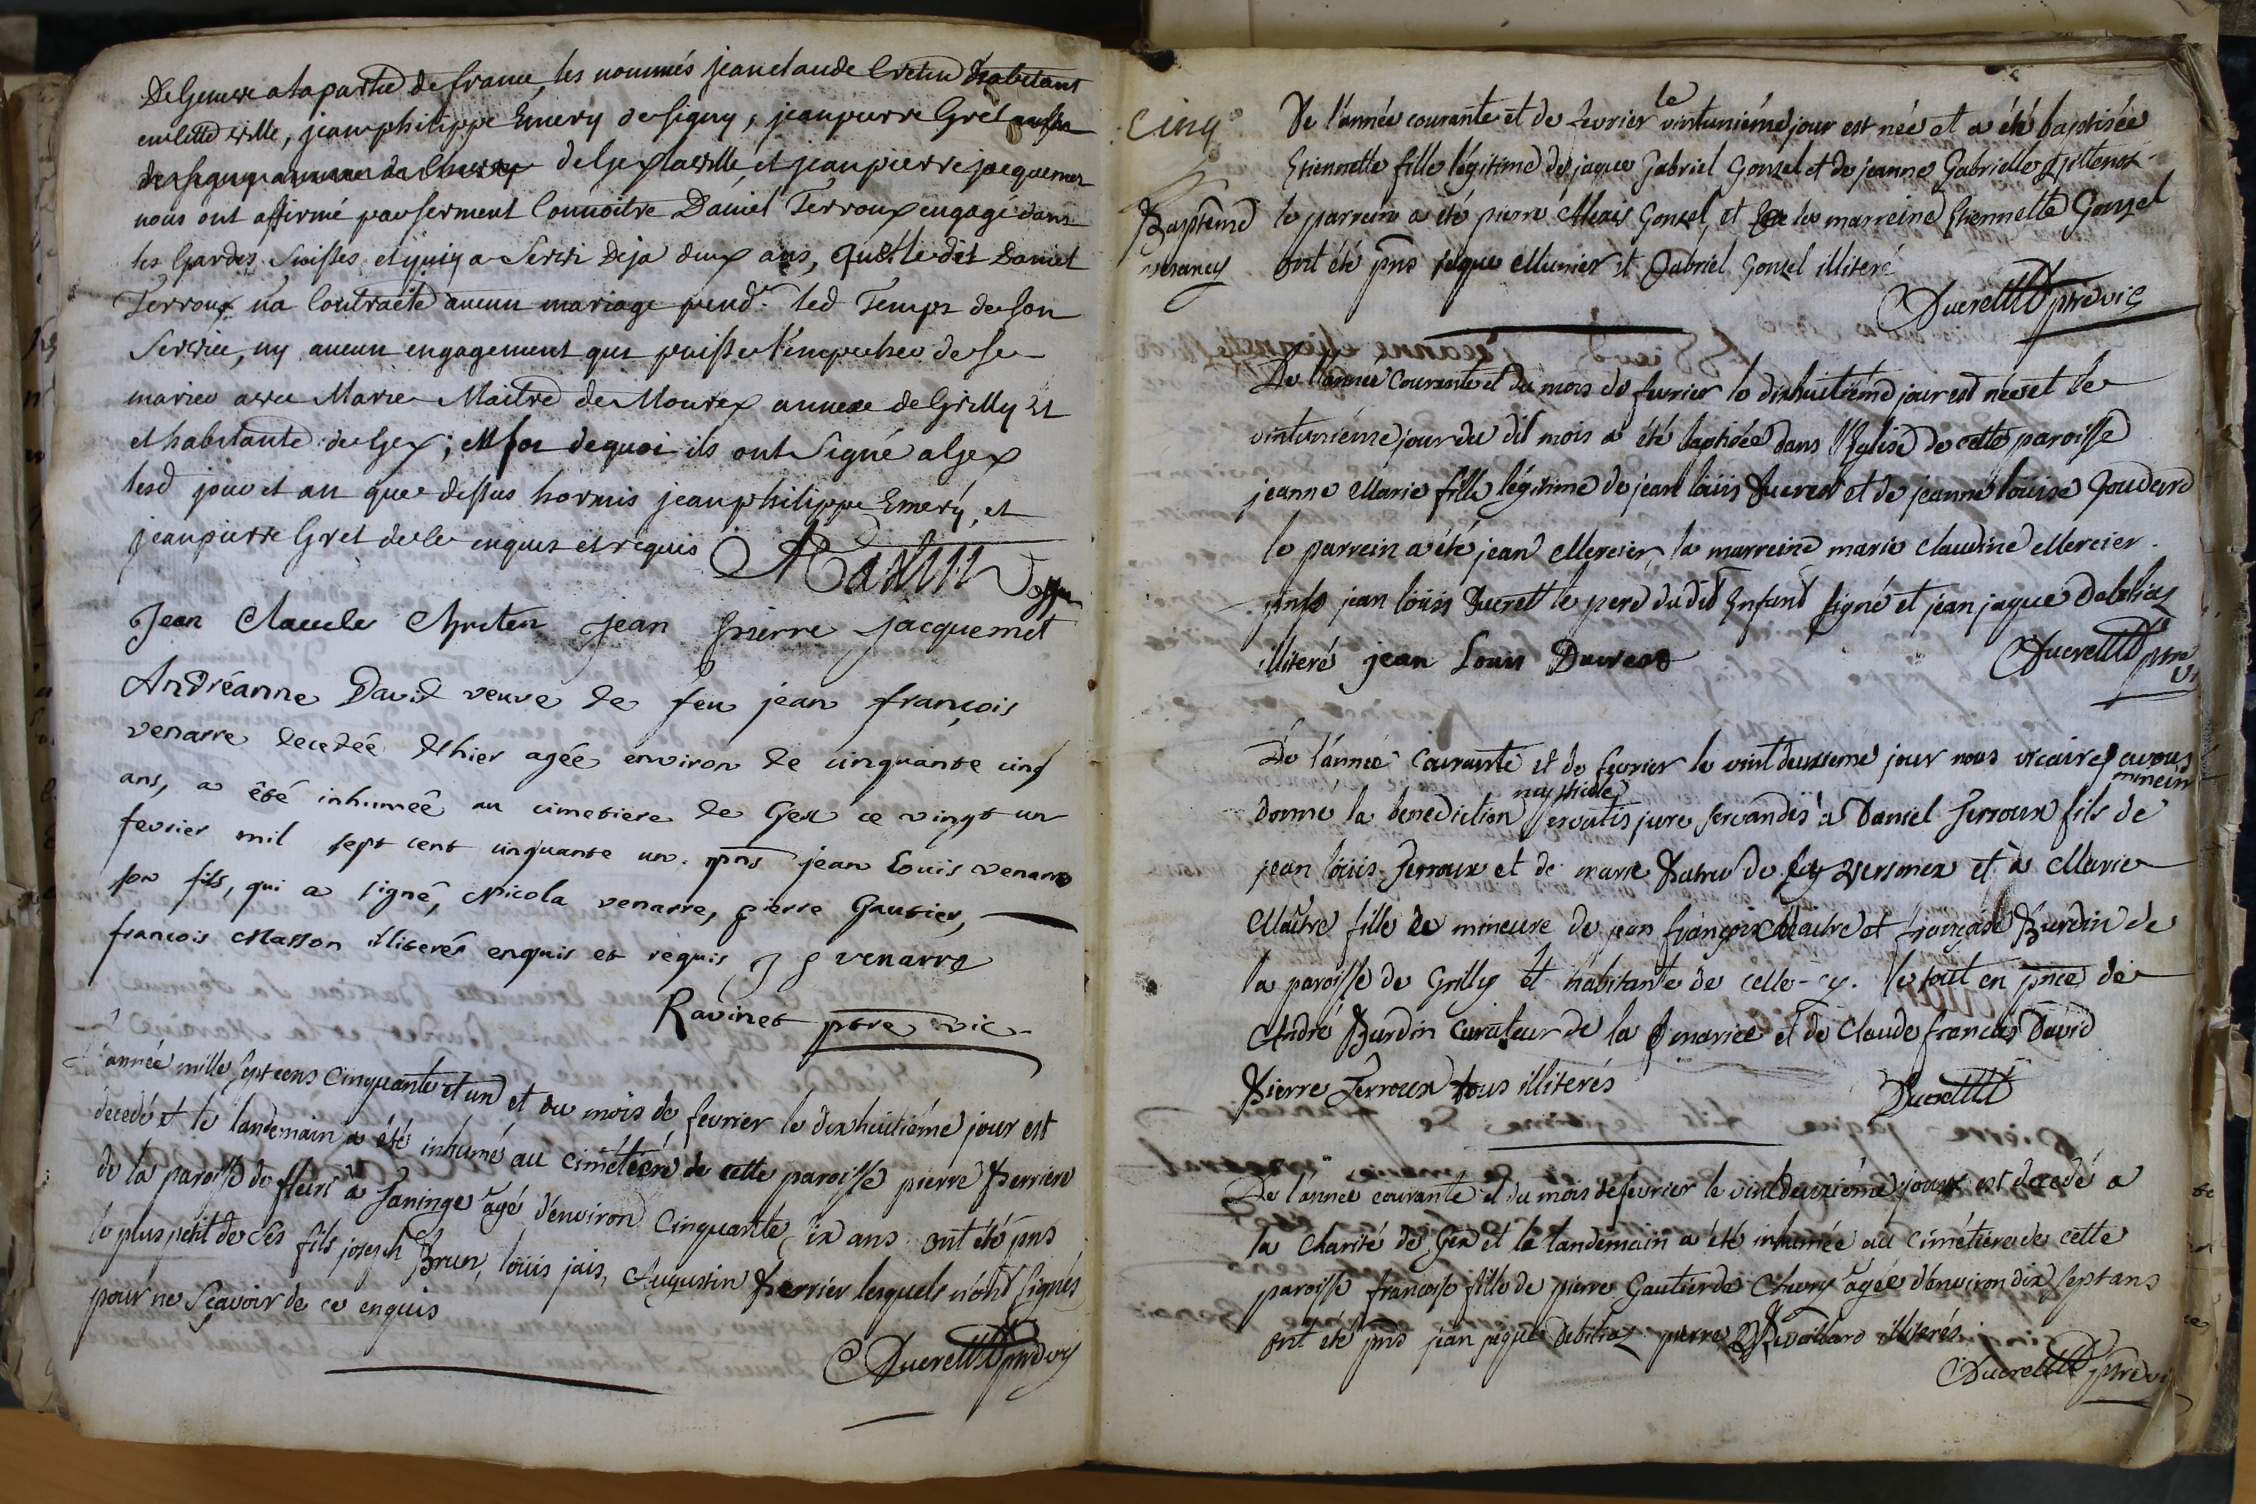 De Geneve a la partie de france, les nommés jeanclaude Cretin habitant
en cette ville, jeanphilippe Emery de Segny, jeanpierre Gret aussi
de Segny annexe de Chevry de Gex la ville et jeanpierre jacquemet
nous ont affirmé par serment Connoitre Daniel Terroux engagé dans
les Gardes Suisses et qui y a Servi Deja deux ans, que le dit Daniel
Terroux n'a Contracté aucun mariage pend.t led Temps de son
Service, ny aucun engagement qui puisse l'empecher de se
marier avec Marie Maitre de Mourex annexe de Grilly Et
et habitante de Gex; en foi de quoi ils ont Signé a Gex
lesd jour et an que dessus hormis jeanphilippe Emery, et
jeanpierre Gret de ce enquis et requis
Jean Claude Chreten jean pierre jacquemet
Andréanne David veuve de feu jean françois
venarre decedée d'hier agée environ de cinquante cinq
ans, a été inhumée au cimetiere de Gex ce vingt un
fevrier mil sept cent cinquante un. pns jean Louis venarre
son fils, qui a signé, Nicola venarre, pierre Gautier,
francois Masson illiterés enquis et requis J L venarre
Ravinet ptre vic
L'année mille sept cens cinquante et un et du mois de fevrier le dixhuitiéme jour est
decedé et le landemain a été inhumé au cimétiére de cette paroisse pierre Perrier
de la paroisse de fleiri à Faninge agé d'environ Cinquante six ans ont été pns
le plus petit de ses fils joseph Brun, loüis jais, Augustin Perrier lesquels n'ont signés
pour ne Sçavoir de ce enquis
Ducrettt ptre vic
Cinq
Baptême
De l'année courante et de fevrier le vintuniéme jour est née et a été baptisée
Etiennette fille légitime de jaque Gabriel Gonsel et de jeanne Gabrielle
le parrein a été pierre Gonsel, et la marreine Etiennette Gonzel
ont été pns jaque Munier et Gabriel Gonsel illiteré
Ducrettt ptre vic
De l'année courante et du mois de fevrier le dixhuitiéme jour est née et le
vintuniéme jour du dit mois a été baptisée dans l'Eglise de cette paroisse
jeanne Marie fille légitime de jean loüis Ducrest et de jeanne loüise Goudard
le parrein a été jean Mercier, la marreine marie Claudine Mercier.
pnts jean loüis Ducrett le pere du dit Enfant signé et jean jaque Debelias
illiterés jean Louis Ducrest
Ducrettt ptre vi
De l'année courante et de fevrier le vint deuxieme jour nous vicaire avons
donné la benediction nuptiale servatis jure servandis à Daniel Terroux fils de
jean loüis Terroux et de marie de Versonex et à Marie
Maitre fille de mineure de jean françois Maitre et françoise Burdin de
la paroisse de Grilly et habitante de celle-cy. le tout en pnce de
André Burdin Curateur de la ditte mariée et de Claude francois David
Pierre Terroux tous illiterés
Ducrettt
De l'année courante et du mois de fevrier le vint deuxiéme jour est decedé a
la charité de Gex et le landemain a été inhumée au cimétiere de cette
paroisse françoise fille de pierre Gautier de Chevry agée d'environ dix sept ans
ont été pns jean jaque Debelias pierre illiterés.
Ducrettt ptre vi